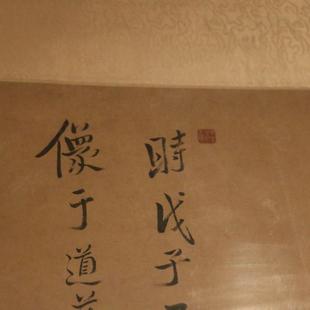 時戊子
儗于道